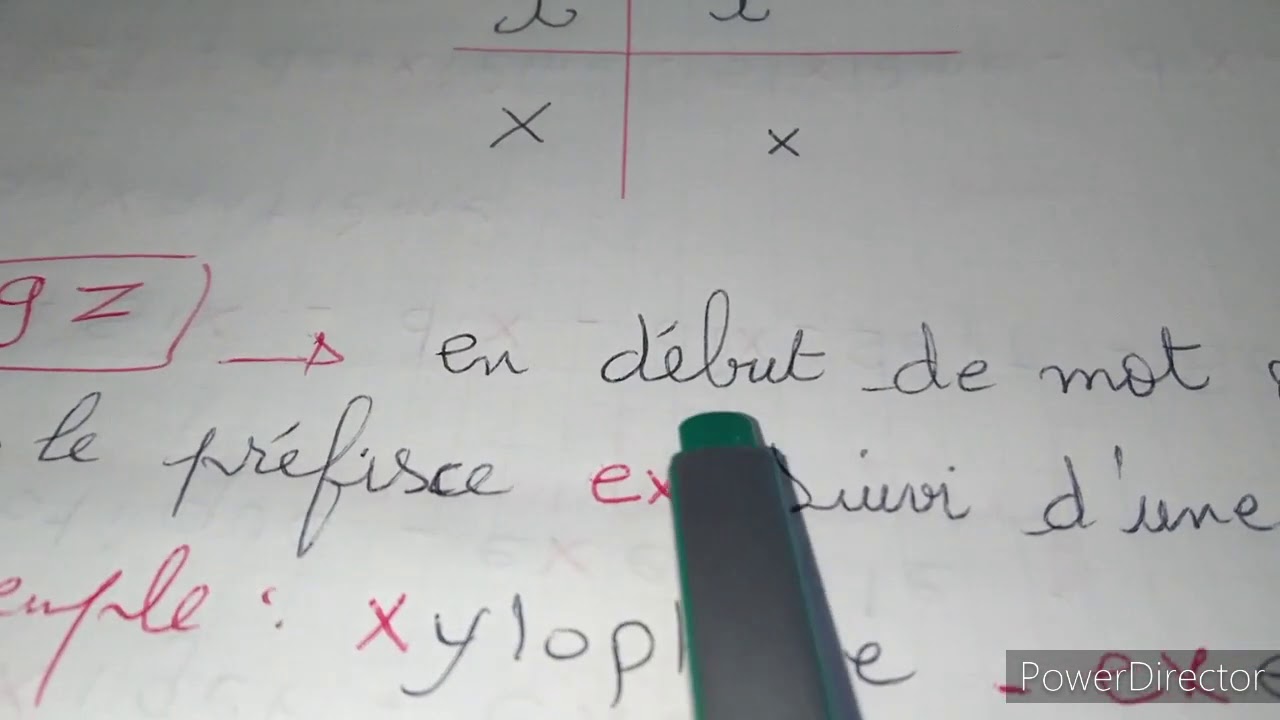 x x
gz → en début de mot
le préfixe ex suivi d'une
: xylop e - ex
PowerDirector